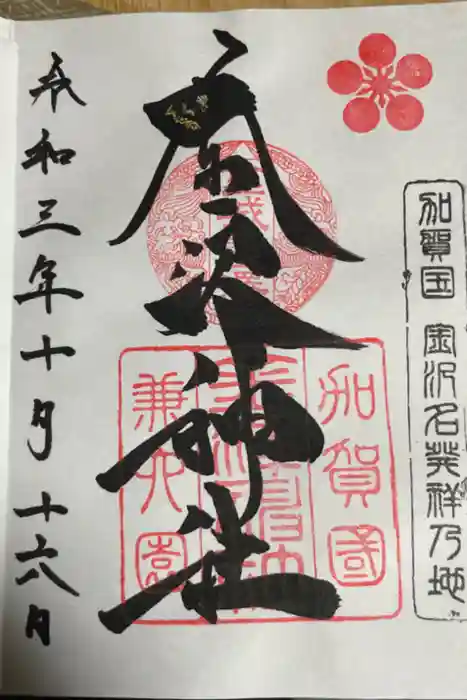 加賀国 金沢名発祥乃地
金沢神社
加賀國
兼六園
令和三年十月十六日